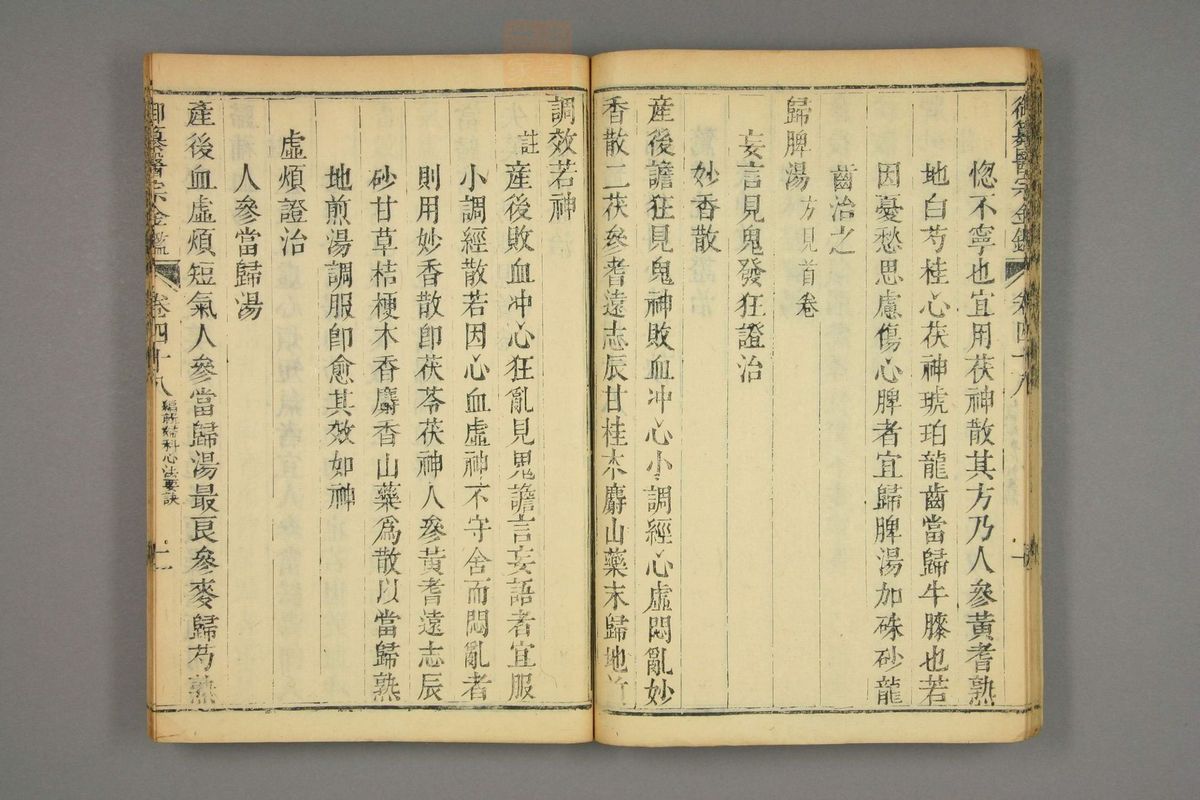 御纂醫宗金鑑 卷四十八
惚不寧也宜用茯神散其方乃人參黃耆熟
地白芍桂心茯神琥珀龍齒當歸牛膝也若
因憂愁思慮傷心脾者宜歸脾湯加硃砂龍
齒治之
歸脾湯方見首卷
妄言見鬼發狂證治
妙香散
產後譫狂見鬼神敗血冲心小調經心虛悶亂妙
香散二茯參耆遠志辰甘桂木麝山藥末歸地煎
調效若神
註產後敗血冲心狂亂見鬼譫言妄語者宜服
小調經散若因心血虛神不守舍而悶亂者
則用妙香散卽茯苓茯神人參黃耆遠志辰
砂甘草桔梗木香麝香山藥爲散以當歸熟
地煎湯調服卽愈其效如神
虛煩證治
人參當歸湯
產後血虛煩短氣人參當歸湯最良參麥歸芍熟
御纂醫宗金鑑 卷四十八 編輯婦科心法要訣